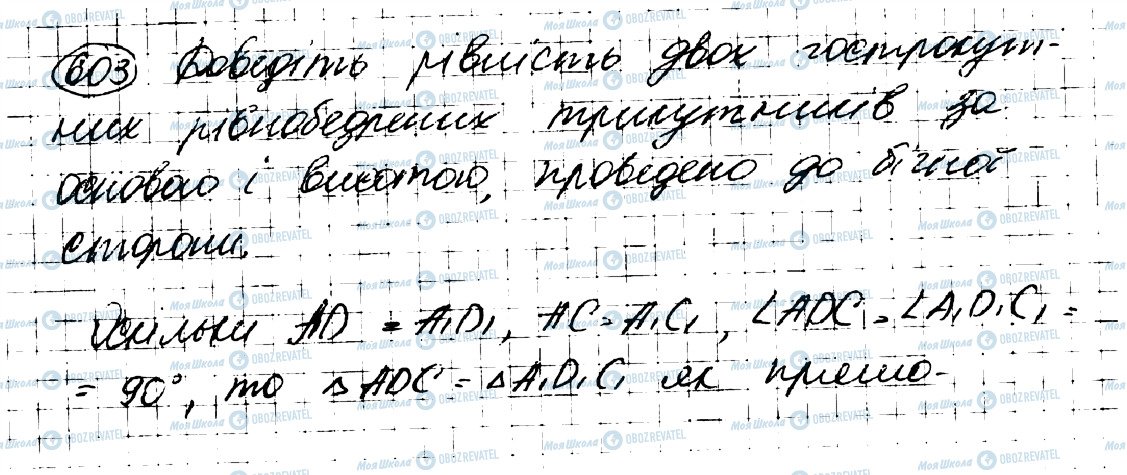 603 Доведіть рівність двох гострокут-
них рівнобедрених трикутників за
основою і висотою, проведено до бічної
сторони.
Оскільки AD = A₁D₁, AC = A₁C₁, ∠ADC = ∠A₁D₁C₁ =
= 90°, то △ADC = △A₁D₁C₁ як прямо-